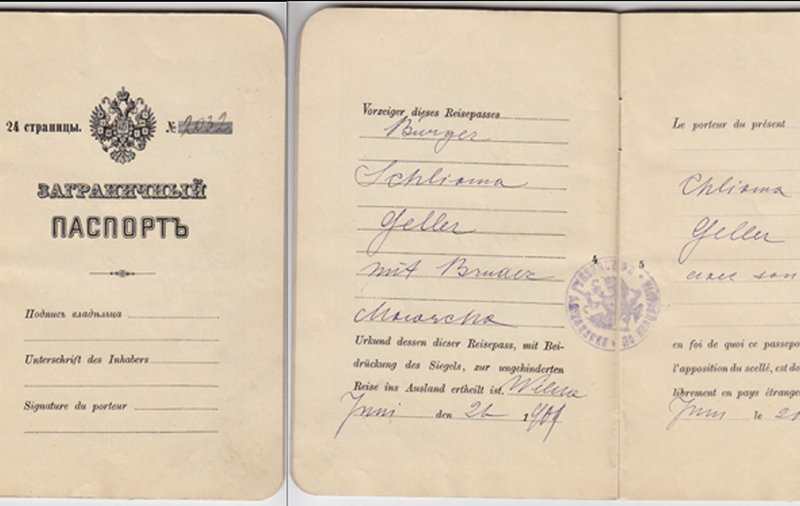 24 страницы. № 2032
ЗАГРАНИЧНЫЙ
ПАСПОРТЪ
Подпись владѣльца
Unterschrift des Inhabers
Signature du porteur
Vorzeiger dieses Reisepasses
Bürger
Schlioma
Geller
mit Bruder
4
Urkund dessen dieser Reisepass, mit Bei-
drückung des Siegels, zur ungehinderten
Reise ins Ausland ertheilt ist. Wilna
Juni den 26 190
5
Le porteur du présent
Chlioma
Geller
avec son
en foi de quoi ce passepo
l'apposition du scellé, est do
librement en pays étrange
Juni le 2